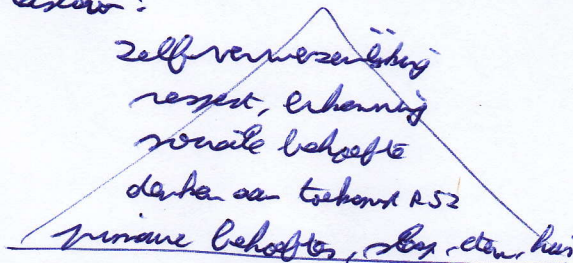 zelfverwezenlijking
respect, erkenning
sociale behoefte
denken aan toekomst
primaire behoeften, slaap, eten, huis